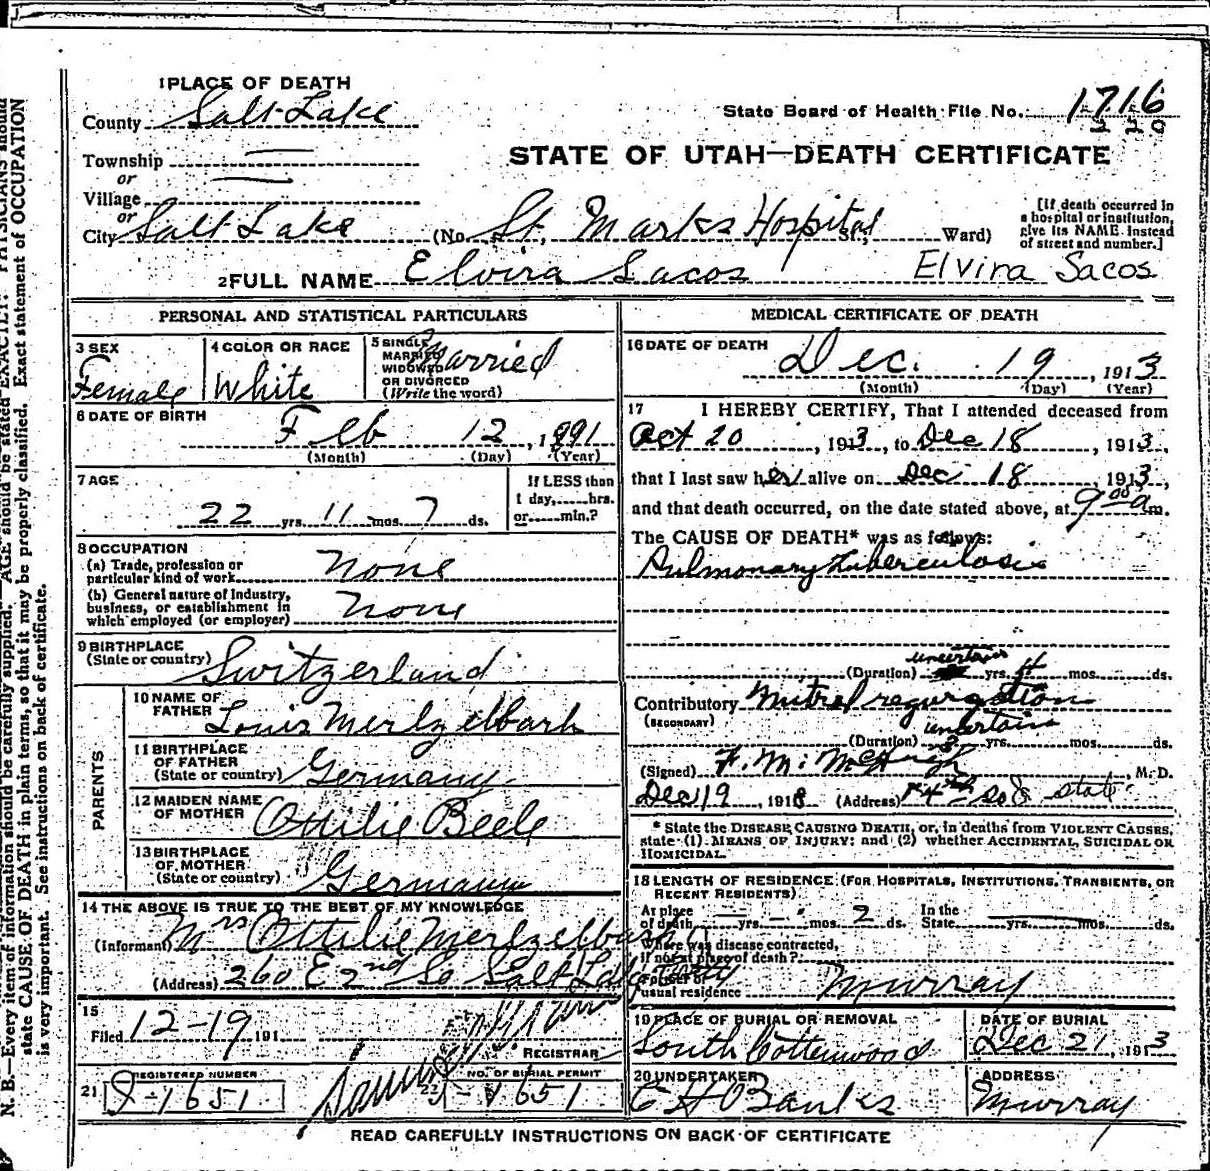 1 PLACE OF DEATH
County Salt Lake
State Board of Health File No. 1716
220
Township —
or
Village —
or
STATE OF UTAH—DEATH CERTIFICATE
City Salt Lake (No. St. Marks Hospital St., Ward)
[If death occurred in
a hospital or institution,
give its NAME instead
of street and number.]
2 FULL NAME Elvira Sacos Elvira Sacos
PERSONAL AND STATISTICAL PARTICULARS
3 SEX
Female
4 COLOR OR RACE
White
5 SINGLE
MARRIED
WIDOWED
OR DIVORCED
(Write the word)
Married
6 DATE OF BIRTH
Feb 12, 1891
(Month) (Day) (Year)
7 AGE
22 yrs. 11 mos. 7 ds.
If LESS than
1 day, hrs.
or min.?
8 OCCUPATION
(a) Trade, profession or
particular kind of work None
(b) General nature of Industry,
business, or establishment in
which employed (or employer) None
9 BIRTHPLACE
(State or country) Switzerland
PARENTS
10 NAME OF
FATHER Louis Merlzelbach
11 BIRTHPLACE
OF FATHER
(State or country) Germany
12 MAIDEN NAME
OF MOTHER Ottilie Beele
13 BIRTHPLACE
OF MOTHER
(State or country) Germany
14 THE ABOVE IS TRUE TO THE BEST OF MY KNOWLEDGE
(Informant) Mrs Ottilie Merlzelbach
(Address) 260 E 2nd So Salt Lake City
15
Filed 12-19 191
REGISTRAR
21 REGISTERED NUMBER
S-1651
NO. OF BURIAL PERMIT
1651
MEDICAL CERTIFICATE OF DEATH
16 DATE OF DEATH
Dec. 19, 1913
(Month) (Day) (Year)
17 I HEREBY CERTIFY, That I attended deceased from
Oct 20, 1913, to Dec 18, 1913,
that I last saw her alive on Dec 18, 1913,
and that death occurred, on the date stated above, at 9 00 a m.
The CAUSE OF DEATH* was as follows:
Pulmonary Tuberculosis
uncertain
(Duration) yrs. mos. ds.
Contributory Mitral regurgation
(SECONDARY)
uncertain
(Duration) yrs. mos. ds.
(Signed) F. M. McHugh, M. D.
Dec 19, 1913 (Address) so & state
* State the DISEASE CAUSING DEATH, or, in deaths from VIOLENT CAUSES,
state (1) MEANS OF INJURY; and (2) whether ACCIDENTAL, SUICIDAL OR
HOMICIDAL.
18 LENGTH OF RESIDENCE (FOR HOSPITALS, INSTITUTIONS, TRANSIENTS, OR
RECENT RESIDENTS)
At place
of death — yrs. - mos. 2 ds. In the
State yrs. mos. ds.
Where was disease contracted,
if not at place of death?
Former or
usual residence Murray
19 PLACE OF BURIAL OR REMOVAL
South Cottonwood
DATE OF BURIAL
Dec 21, 1913
20 UNDERTAKER
ADDRESS
Banks
Murray
READ CAREFULLY INSTRUCTIONS ON BACK OF CERTIFICATE
N. B.—Every item of information should be carefully supplied. AGE should be stated EXACTLY. PHYSICIANS should
state CAUSE OF DEATH in plain terms, so that it may be properly classified. Exact statement of OCCUPATION
is very important. See instructions on back of certificate.